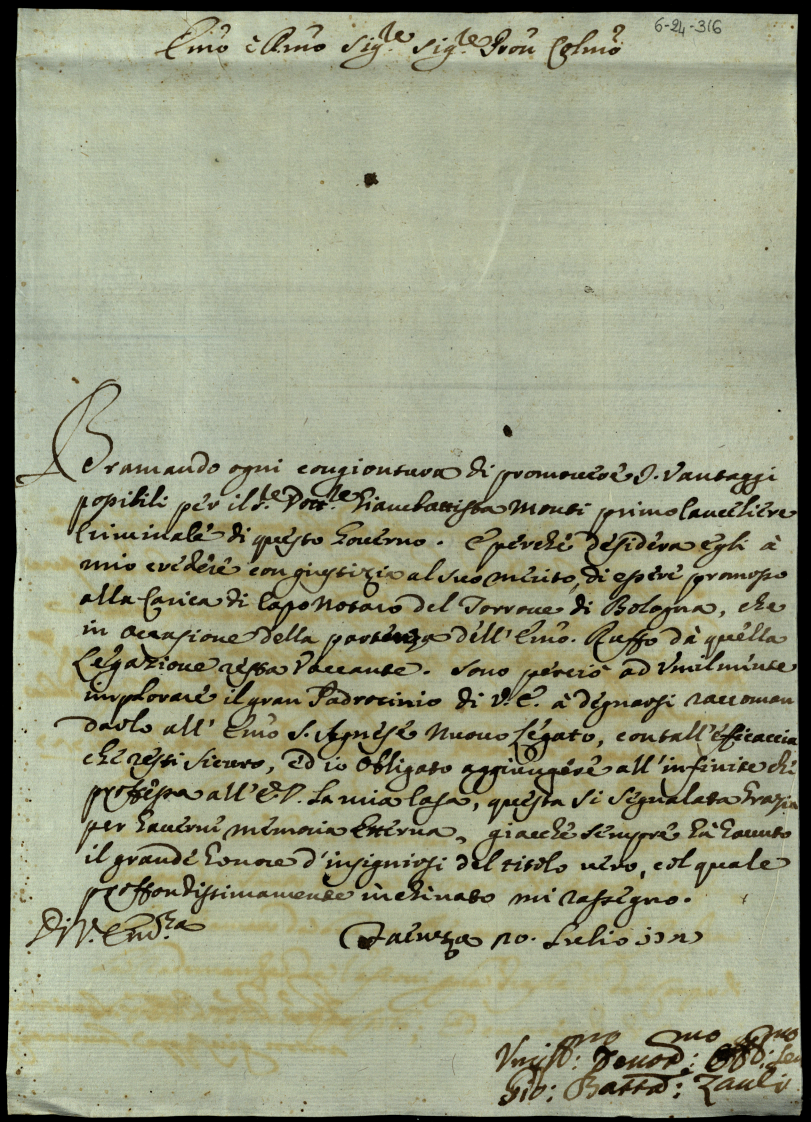 6-24-316
Emo e Rmo Sig.re Sig.re Pron Colmo
Bramando ogni congiontura di promovere i vantaggi
possibili per il S.re Dott.re Giambattista Monti primo Cancelliere
Criminale di questo Governo. E perche desidera egli à
mio credere con giustizia al suo merito, di essere promosso
alla Carica di Capo Notaro del Torrone di Bologna, che
in occasione della partenza dell' Emo. Ruffo da quella
Legazione resta Vaccante. Sono perciò ad Vmilmente
implorare il gran Padrocinio di V. E. à degnarsi raccoman
darlo all' Emo S. Agnese Nuovo Legato, con tall' efficaccia
che resti sicuro, ed io obligato aggiungere all' infinite che
proffessa all' E. V. La mia Casa, questa si segnalata Grazia
per haverne memoria Etterna, giacche sempre hà havuto
il grande honore d' insignirsi del titolo vero, col quale
proffondissimamente inchinato mi rassegno.
Di V. Em.za
Faenza 20. Luelio
Vmiliss:mo Devot:mo Obb:mo Se
Gio: Batta: Zauli